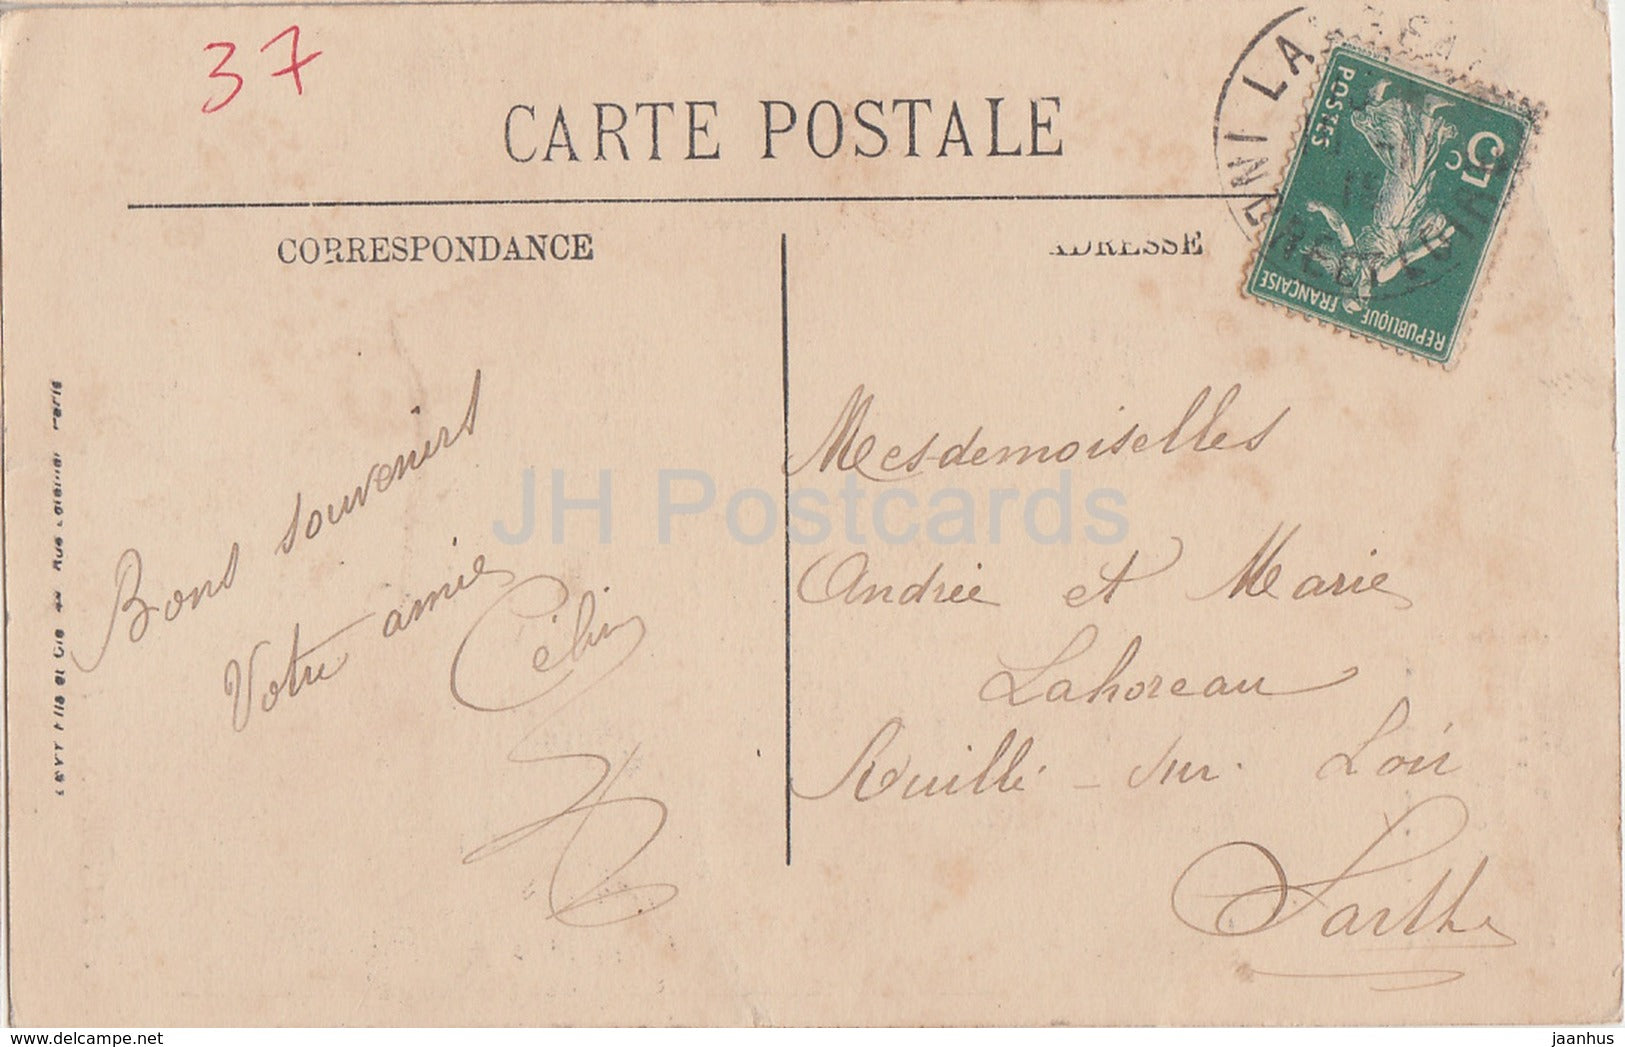 37
CARTE POSTALE
CORRESPONDANCE
ADRESSE
POSTES
5 c
REPUBLIQUE FRANÇAISE
INDRE ET LOIRE
LEVY Fils et Cie Rue Letellier Paris
Bons souvenirs
Votre amie
Célin
Mesdemoiselles
Andrée et Marie
Lahoreau
Ruillé-sur-Loir
Sarthe
JH Postcards
jaanhus